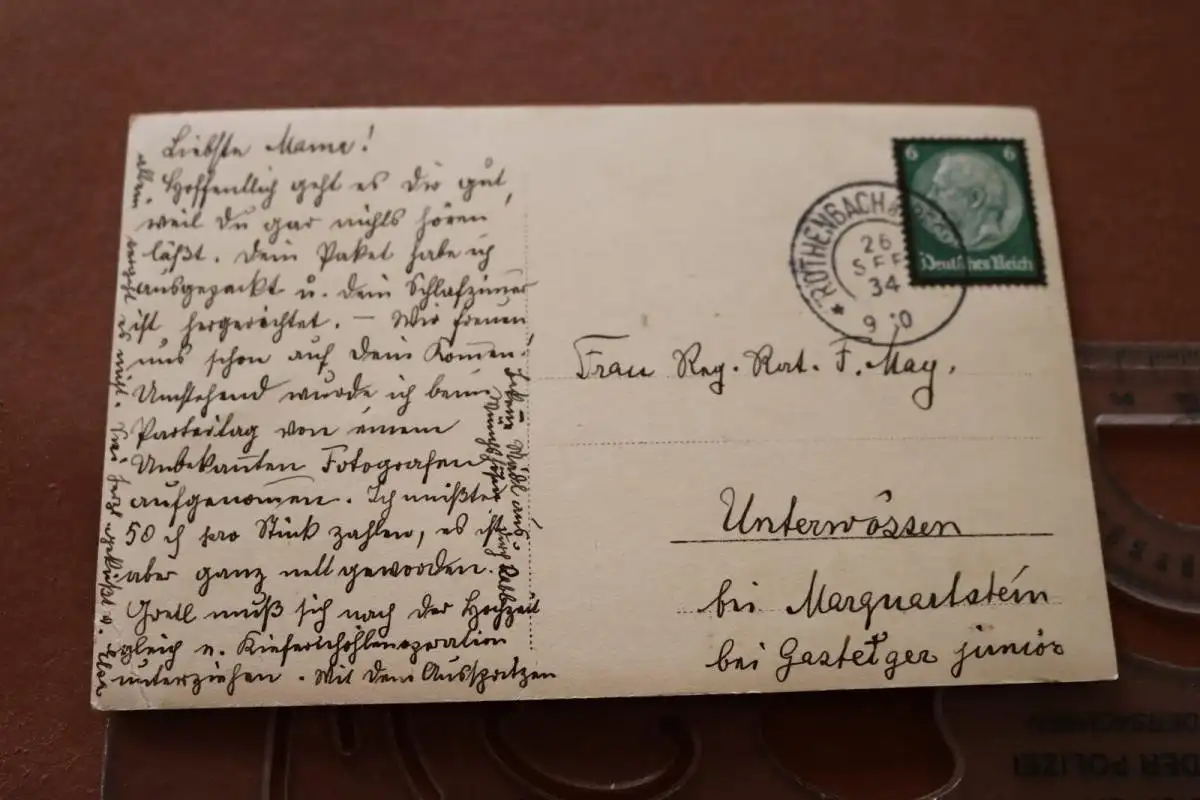 Liebste Mame!
Hoffentlich geht es Dir gut,
weil Du gar nichts hören
läßt. Dein Paket habe ich
ausgepackt u. Dein Schlafzimmer
ist hergerichtet. – Wir freuen
uns schon auf Dein Kommen.
Umstehend wurde ich beim
Parteitag von einem
Unbekannten Fotografen
aufgenommen. Ich mußte
50 ₰ pro Stück zahlen, es ist
aber ganz nett geworden.
Gretl muß sich nach der Hochzeit
gleich e. Kieferhöhlenoperation
unterziehen. Mit dem Ausspritzen
allein
vergeht es nicht.
6 6
Deutsches Reich
RÖTHENBACH
26
SEP
34
9
Frau Reg. Rat. F. May.
Unterwössen
bei Marquartstein
bei Gasteiger junior
DER POLIZEI